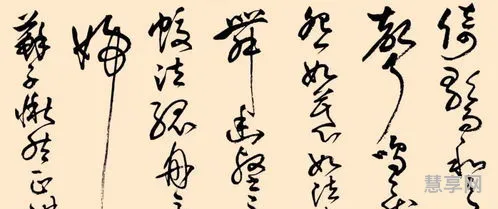 倚歌和之
聲嗚嗚然
怨如慕如泣
舞幽壑之
蛟泣孤舟之
婦
蘇子愀然正襟
慧享网